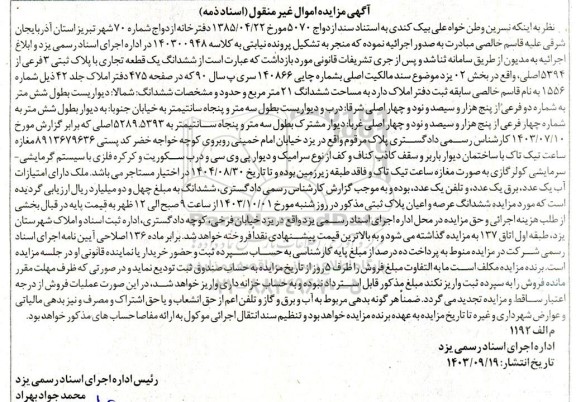 آگهی مزایده اموال غیر منقول (اسناد ذمه)
نظر به اینکه نسرین وطن خواه علی بیک کندی به استناد سند ازدواج ۵۰۷۰ مورخ ۱۳۸۵/۰۴/۲۲ دفترخانه ازدواج شماره ۷۰ شهر تبریز استان آذربایجان
شرقی علیه قاسم خالصی مبادرت به صدور اجرائیه نموده که منجر به تشکیل پرونده نیابتی به کلاسه ۱۴۰۳۰۰۹۴۸ در اداره اجرای اسناد رسمی یزد و ابلاغ
اجرائیه به مدیون از طریق سامانه ثنا شد و پس از جری تشریفات قانونی مورد بازداشت که عبارت است از ششدانگ یک قطعه تجاری با پلاک ثبتی ۳ فرعی از
۵۳۹۴ اصلی، واقع در بخش ۰۲ یزد موضوع سند مالکیت اصلی بشماره چاپی ۱۴۰۸۶۶ سری پ سال ۹۰ که در صفحه ۴۷۵ دفتر املاک جلد ۴۲ ذیل شماره
۱۵۵۶ به نام قاسم خالصی سابقه ثبت دفتر املاک دارد به مساحت ششدانگ ۲۱ متر مربع و حدود و مشخصات ششدانگ: شمالا: دیواریست بطول شش متر
به شماره دو فرعی از پنج هزار و سیصد و نود و چهار اصلی شرقا: درب و دیواریست بطول سه متر و پنجاه سانتیمتر به خیابان جنوبا: به دیوار بطول شش متر به
شماره چهار فرعی از پنج هزار و سیصد و نود و چهار اصلی غربا: دیوار مشترک بطول سه متر و پنجاه سانتیمتر به ۵۲۸۹.۵۳۹۳ اصلی که برابر گزارش مورخ
۱۴۰۳/۰۷/۱۰ کارشناس رسمی دادگستری پلاک مرقوم واقع در یزد خیابان امام خمینی روبروی کوچه خواجه خضر کد پستی ۸۹۱۳۶۷۹۶۳۶ مغازه
ساعت تیک تاک با ساختمان دیوار باربر و سقف کاذب کناف و کف از نوع سرامیک و دیوار پی وی سی و درب سکوریت و کرکره فلزی با سیستم گرمایشی -
سرمایشی کولر گازی به صورت مغازه ساعت تیک تاک و فاقد طبقه زیرزمین بوده و تا تاریخ ۱۴۰۴/۰۸/۳۰ در اختیار مستاجر می باشد. ملک دارای امتیازات
آب یک عدد، برق یک عدد، و تلفن یک عدد، بوده و به موجب گزارش کارشناس رسمی دادگستری، ششدانگ به مبلغ چهل و دو میلیارد ریال ارزیابی گردیده
است که مورد مزایده ششدانگ عرصه و اعیان پلاک ثبتی مذکور در روز شنبه مورخ ۱۴۰۳/۱۰/۰۱ از ساعت ۹ صبح الی ۱۲ ظهر به قیمت پایه در قبال بخشی
از طلب هزینه اجرائی و حق مزایده در محل اداره اجرای اسناد رسمی یزد واقع در یزد خیابان فرخی، کوچه دادگستری، اداره ثبت اسناد و املاک شهرستان
یزد، طبقه اول اتاق ۱۳۷ به مزایده گذاشته می شود و به بالاترین قیمت پیشنهادی نقدا فروخته خواهد شد. برابر ماده ۱۳۶ اصلاحی آیین نامه اجرای اسناد
رسمی شرکت در مزایده منوط به پرداخت ده درصد از مبلغ پایه کارشناسی به حساب سپرده ثبت و حضور خریدار یا نماینده قانونی او در جلسه مزایده
است. برنده مزایده مکلف است مابه التفاوت مبلغ فروش را ظرف ۵ روز از تاریخ مزایده به حساب صندوق ثبت تودیع نماید و در صورتی که ظرف مهلت مقرر
مانده فروش را به سپرده ثبت واریز نکند مبلغ مذکور قابل استرداد نبوده و به حساب خزانه داری واریز خواهد شد، در این صورت عملیات فروش از درجه
اعتبار ساقط و مزایده تجدید می گردد. ضمنا هر گونه بدهی مربوط به آب و برق و گاز و تلفن اعم از حق انشعاب و یا حق اشتراک و مصرف و نیز بدهی مالیاتی
و عوارض شهرداری و غیره تا تاریخ مزایده به عهده برنده مزایده خواهد بود و تنظیم سند انتقال اجرائی موکول به ارائه مفاصا حساب های مذکور خواهد بود.
م الف ۱۱۹۲
اداره اجرای اسناد رسمی یزد
تاریخ انتشار: ۱۴۰۳/۰۹/۱۹
رئیس اداره اجرای اسناد رسمی یزد
محمد جواد بهراد